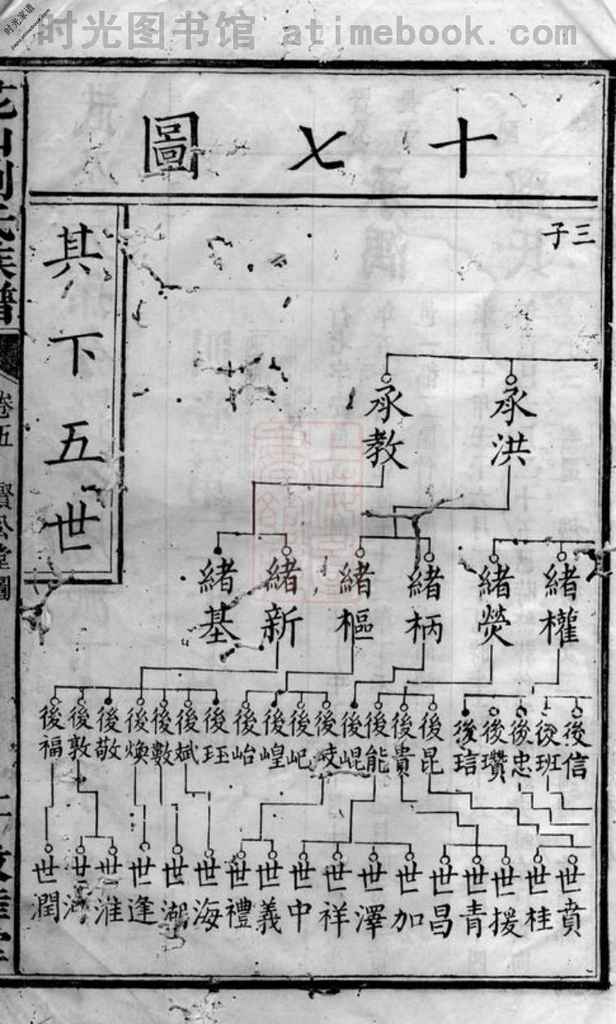 时光图书馆 atimebook.com
时光家谱
十七圖
三子
承洪
承教
緒權
緒熒
緒柄
緒樞
緒新
緒基
後信
後班
後忠
後瓚
後琂
後昆
後貴
後能
後崐
後峻
後屺
後崲
後峆
後珏
後斌
後數
後煥
後敬
後敦
後福
世賁
世桂
世援
世青
世昌
世加
世澤
世祥
世中
世義
世禮
世海
世湖
世逢
世淮
世潤
其下五世
卷五